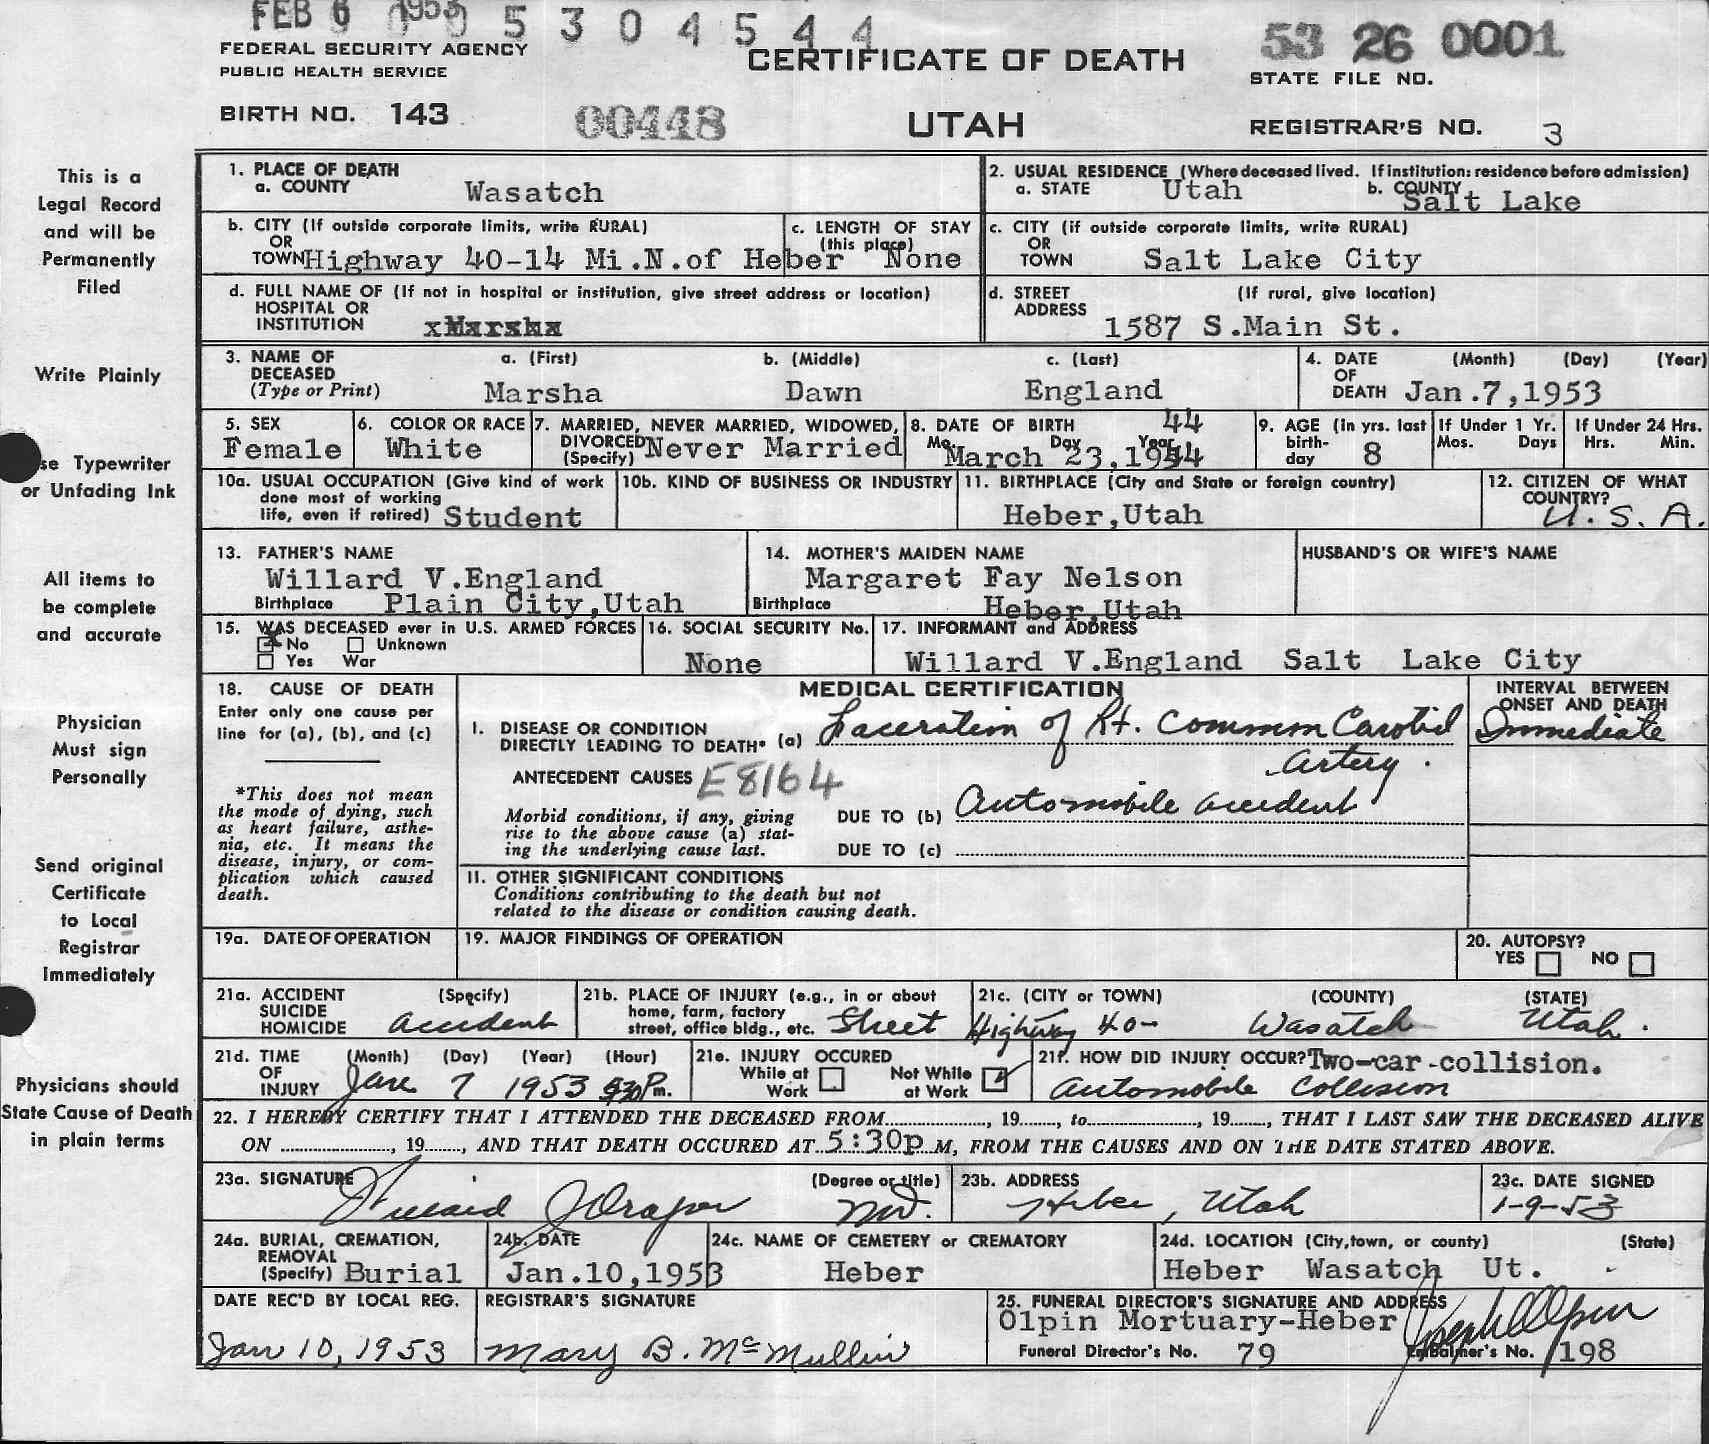 FEB 6 1953 5 3 0 4 5 4 4
53 26 0001
FEDERAL SECURITY AGENCY
PUBLIC HEALTH SERVICE
CERTIFICATE OF DEATH
STATE FILE NO.
BIRTH NO. 143
00448
UTAH
REGISTRAR'S NO. 3
This is a
Legal Record
and will be
Permanently
Filed
Write Plainly
se Typewriter
or Unfading Ink
All items to
be complete
and accurate
Physician
Must sign
Personally
Send original
Certificate
to Local
Registrar
Immediately
Physicians should
State Cause of Death
in plain terms
1. PLACE OF DEATH
a. COUNTY Wasatch
2. USUAL RESIDENCE (Where deceased lived. If institution: residence before admission)
a. STATE Utah b. COUNTY Salt Lake
b. CITY (If outside corporate limits, write RURAL)
OR
TOWN Highway 40-14 Mi.N.of Heber
c. LENGTH OF STAY
(this place) None
c. CITY (if outside corporate limits, write RURAL)
OR
TOWN Salt Lake City
d. FULL NAME OF (If not in hospital or institution, give street address or location)
HOSPITAL OR
INSTITUTION xMarsha
d. STREET (If rural, give location)
ADDRESS 1587 S.Main St.
3. NAME OF a. (First) b. (Middle) c. (Last)
DECEASED
(Type or Print) Marsha Dawn England
4. DATE (Month) (Day) (Year)
OF
DEATH Jan.7,1953
5. SEX
Female
6. COLOR OR RACE
White
7. MARRIED, NEVER MARRIED, WIDOWED,
DIVORCED
(Specify) Never Married
8. DATE OF BIRTH 44
Mo. Day Year
March 23,1944
9. AGE (in yrs. last
birth-
day 8
If Under 1 Yr.
Mos. Days
If Under 24 Hrs.
Hrs. Min.
10a. USUAL OCCUPATION (Give kind of work
done most of working
life, even if retired) Student
10b. KIND OF BUSINESS OR INDUSTRY
11. BIRTHPLACE (City and State or foreign country)
Heber,Utah
12. CITIZEN OF WHAT
COUNTRY?
U.S.A.
13. FATHER'S NAME
Willard V.England
Birthplace Plain City,Utah
14. MOTHER'S MAIDEN NAME
Margaret Fay Nelson
Birthplace Heber,Utah
HUSBAND'S OR WIFE'S NAME
15. WAS DECEASED ever in U.S. ARMED FORCES
x No Unknown
Yes War
16. SOCIAL SECURITY No.
None
17. INFORMANT and ADDRESS
Willard V.England Salt Lake City
18. CAUSE OF DEATH
Enter only one cause per
line for (a), (b), and (c)
*This does not mean
the mode of dying, such
as heart failure, asthe-
nia, etc. It means the
disease, injury, or com-
plication which caused
death.
MEDICAL CERTIFICATION
INTERVAL BETWEEN
ONSET AND DEATH
I. DISEASE OR CONDITION
DIRECTLY LEADING TO DEATH* (a) Laceration of Rt. Common Carotid Immediate
Artery.
ANTECEDENT CAUSES E8164
Morbid conditions, if any, giving
rise to the above cause (a) stat-
ing the underlying cause last.
DUE TO (b) Automobile accident
DUE TO (c)
II. OTHER SIGNIFICANT CONDITIONS
Conditions contributing to the death but not
related to the disease or condition causing death.
19a. DATE OF OPERATION
19. MAJOR FINDINGS OF OPERATION
20. AUTOPSY?
YES NO
21a. ACCIDENT (Specify)
SUICIDE
HOMICIDE accident
21b. PLACE OF INJURY (e.g., in or about
home, farm, factory
street, office bldg., etc. Street
21c. (CITY or TOWN) (COUNTY) (STATE)
Highway 40- Wasatch Utah.
21d. TIME (Month) (Day) (Year) (Hour)
OF
INJURY Jan 7 1953 5:30 P m.
21e. INJURY OCCURED
While at Not While
Work at Work
21f. HOW DID INJURY OCCUR? Two-car-collision.
Automobile Collision
22. I HEREBY CERTIFY THAT I ATTENDED THE DECEASED FROM, 19, to, 19, THAT I LAST SAW THE DECEASED ALIVE
ON, 19, AND THAT DEATH OCCURED AT 5:30p M, FROM THE CAUSES AND ON THE DATE STATED ABOVE.
23a. SIGNATURE (Degree or title)
Draper MD.
23b. ADDRESS
Heber, Utah
23c. DATE SIGNED
1-9-53
24a. BURIAL, CREMATION,
REMOVAL
(Specify) Burial
24b. DATE
Jan.10,1953
24c. NAME OF CEMETERY or CREMATORY
Heber
24d. LOCATION (City, town, or county) (State)
Heber Wasatch Ut.
DATE REC'D BY LOCAL REG.
Jan 10, 1953
REGISTRAR'S SIGNATURE
Mary B. McMullin
25. FUNERAL DIRECTOR'S SIGNATURE AND ADDRESS
Olpin Mortuary-Heber Olpin
Funeral Director's No. 79 Embalmer's No. 198